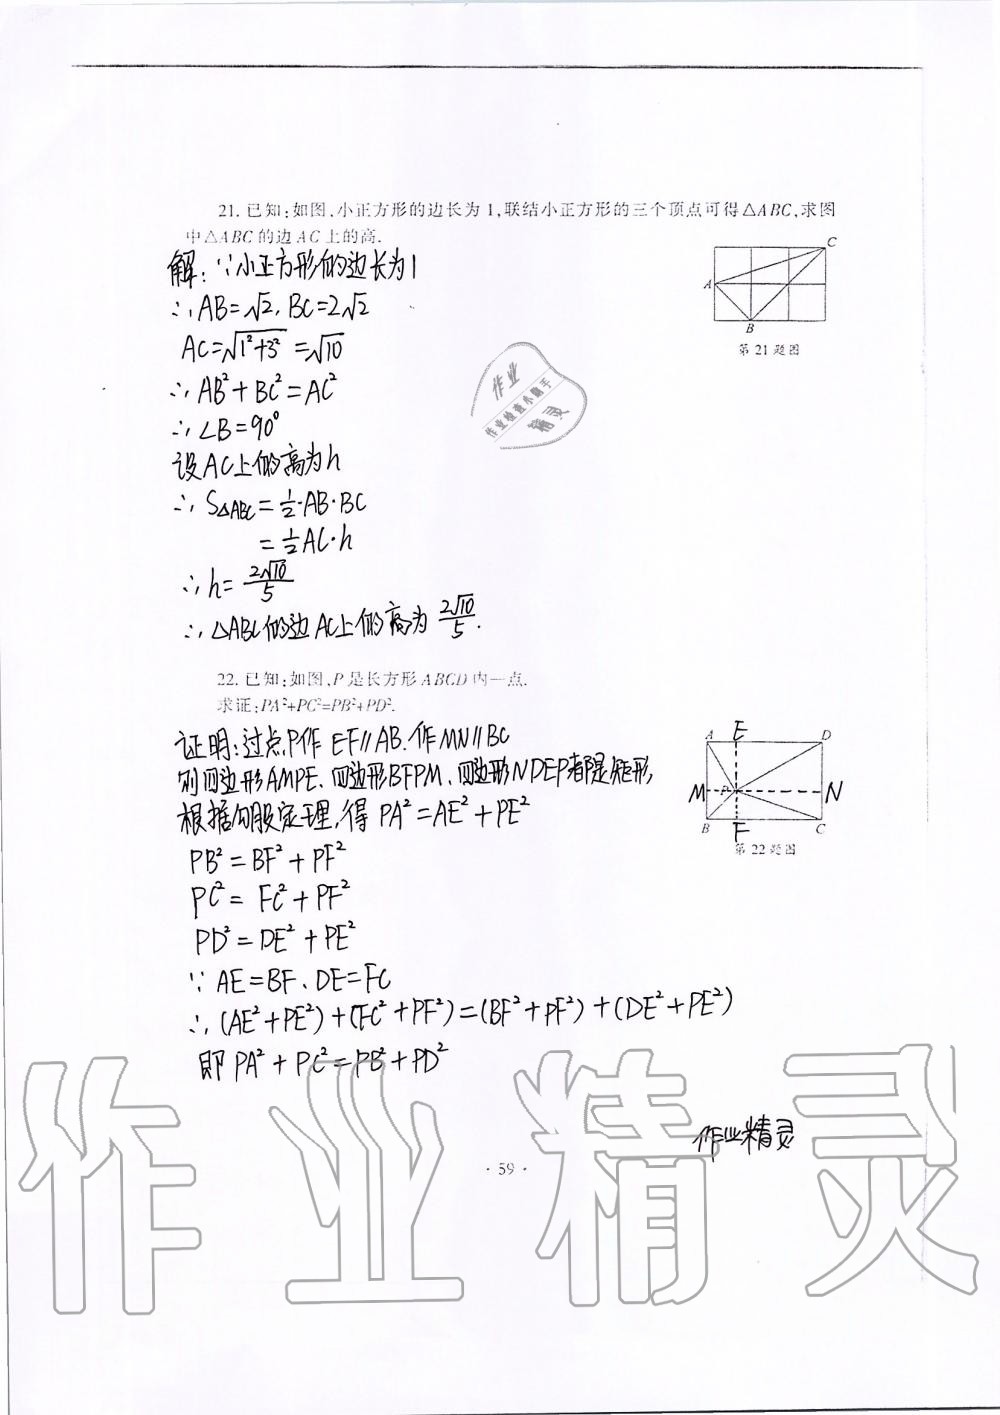 21. 已知:如图,小正方形的边长为1,联结小正方形的三个顶点可得△ABC,求图
中△ABC的边AC上的高.
解:∵小正方形的边长为1
∴AB=√2, BC=2√2
AC=√(1²+3²)=√10
∴AB²+BC²=AC²
∴∠B=90°
设AC上的高为h
∴S△ABC=1/2·AB·BC
=1/2AC·h
∴h=2√10/5
∴△ABC的边AC上的高为2√10/5.
A
B
C
第21题图
作业
作业检查小助手
精灵
22. 已知:如图,P是长方形ABCD内一点.
求证:PA²+PC²=PB²+PD².
证明:过点P作EF∥AB.作MN∥BC
则四边形AMPE、四边形BFPM、四边形NDEP都是矩形,
根据勾股定理,得PA²=AE²+PE²
PB²=BF²+PF²
PC²=FC²+PF²
PD²=DE²+PE²
∵AE=BF、DE=FC
∴(AE²+PE²)+(FC²+PF²)=(BF²+PF²)+(DE²+PE²)
即PA²+PC²=PB²+PD²
A E D
M P N
B F C
第22题图
作业精灵
·59·
作业精灵